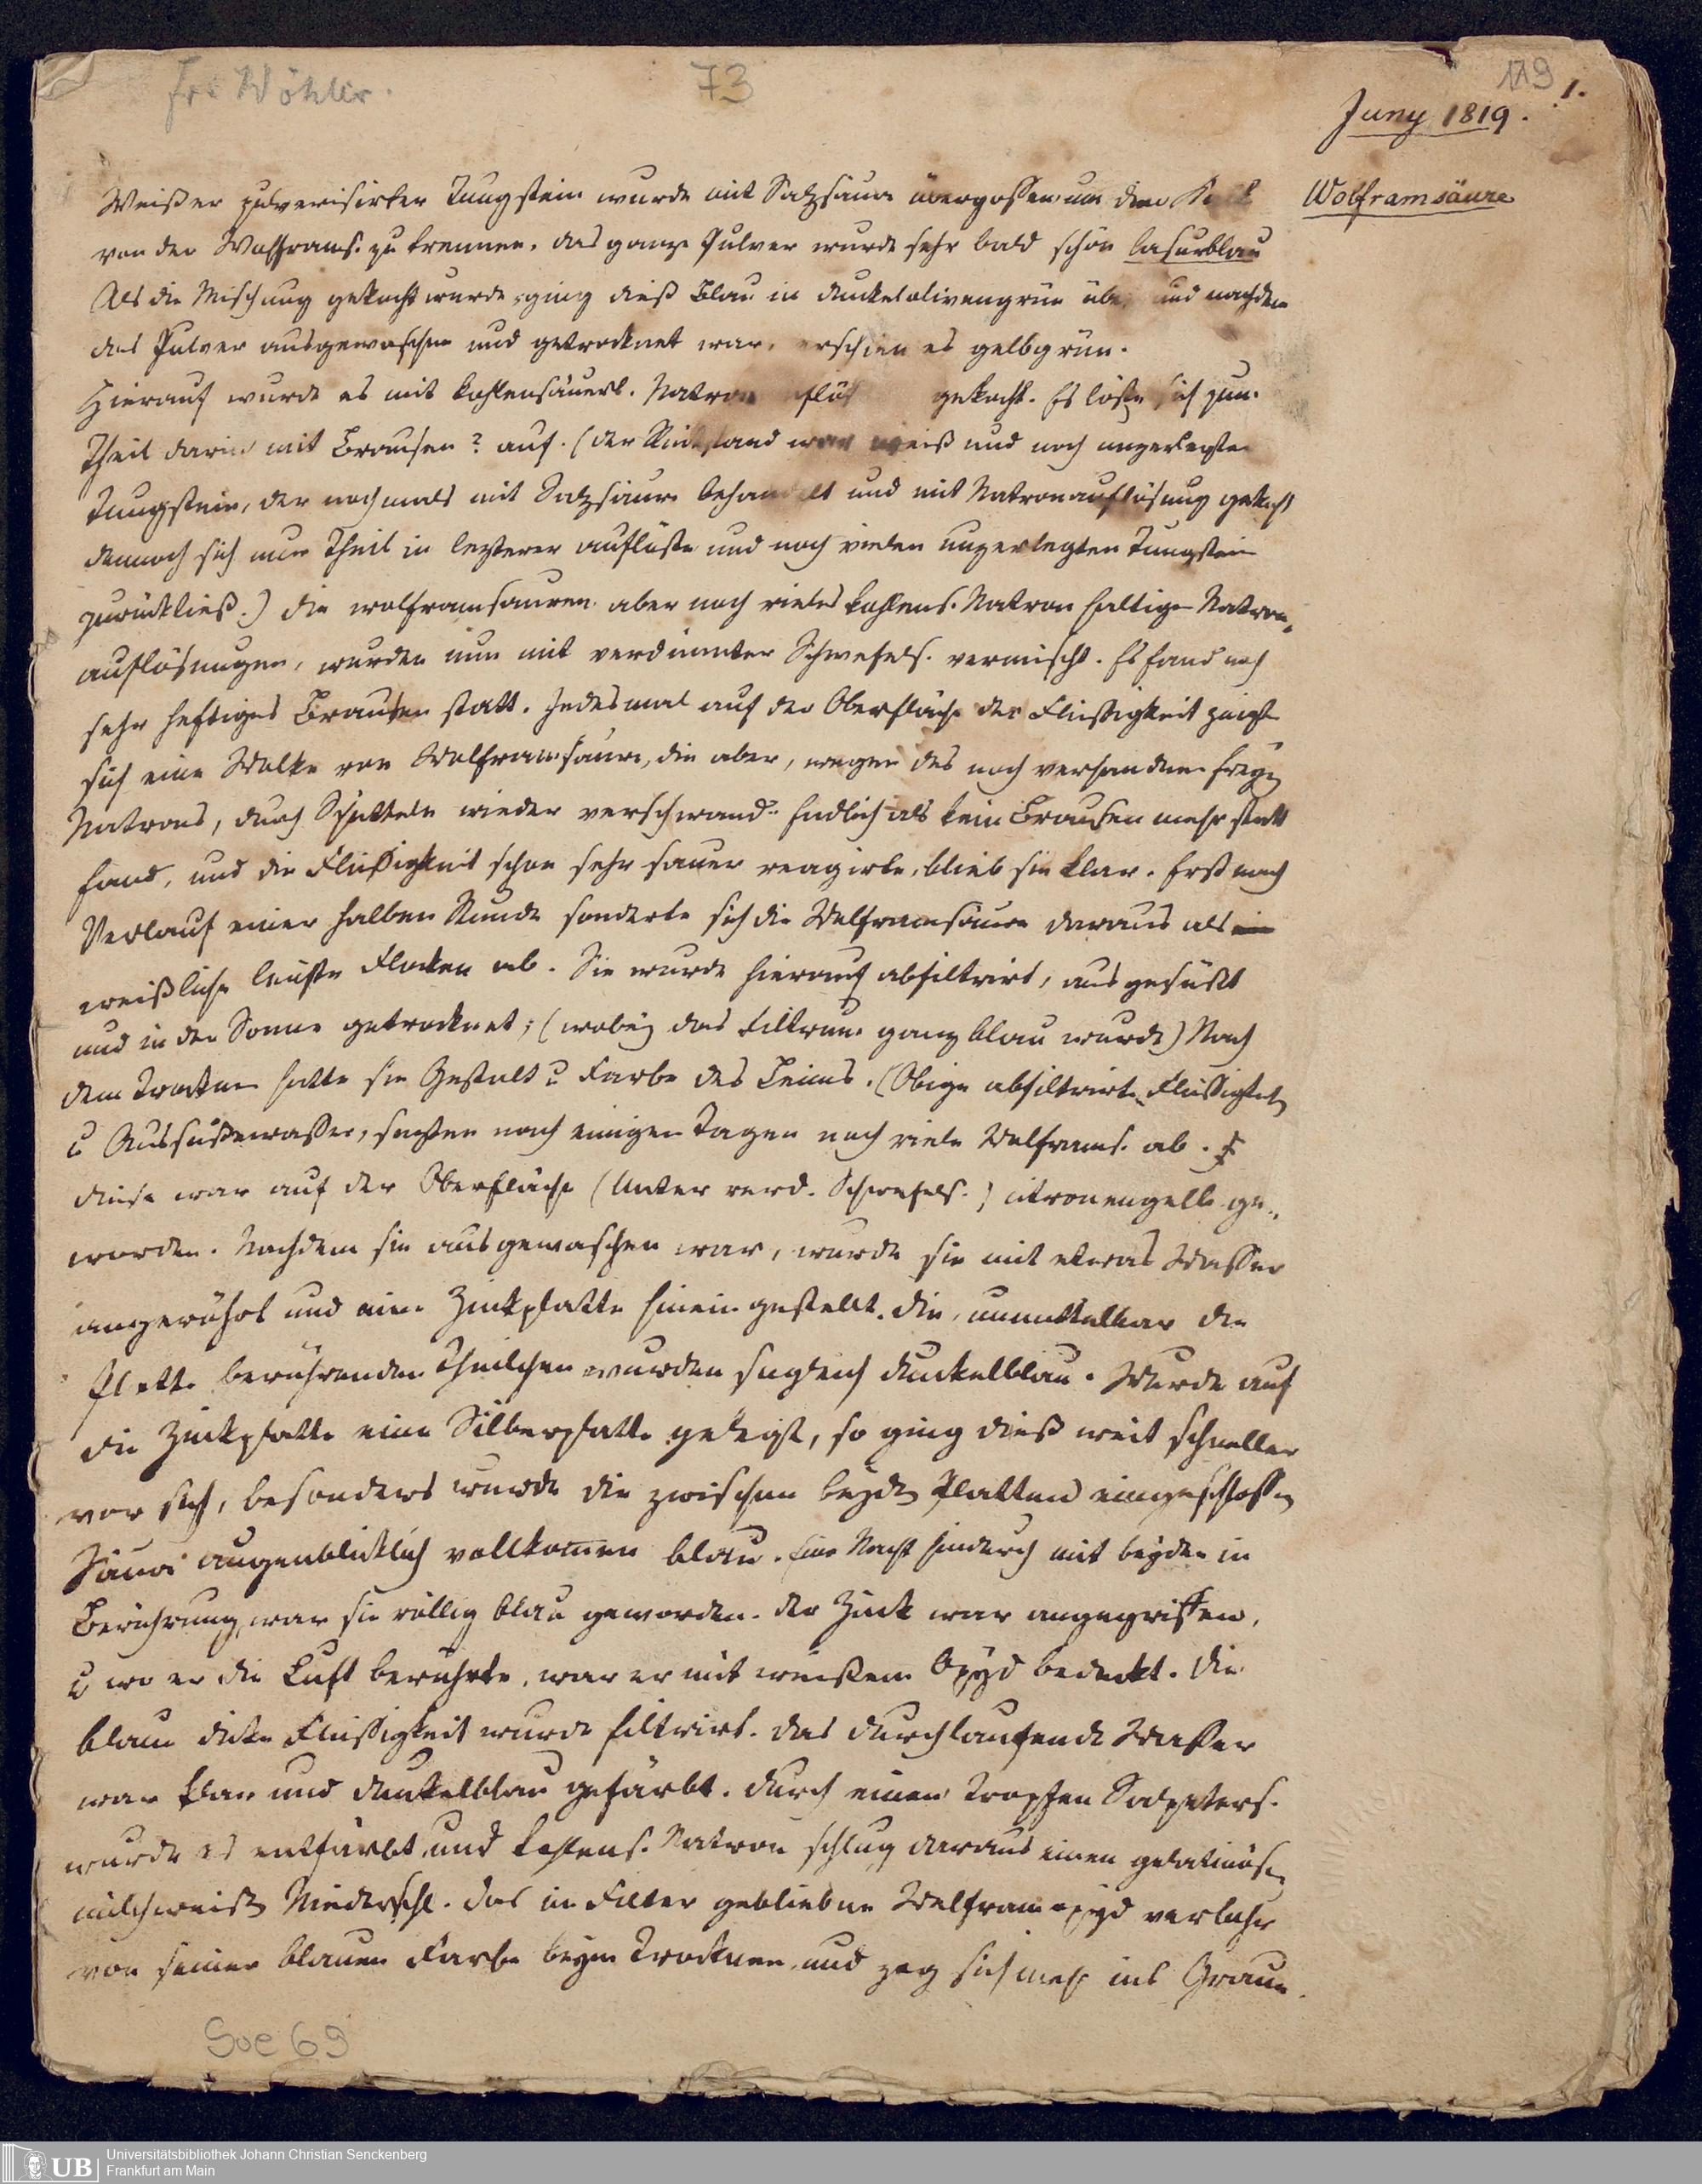 Fr. Wöhler.
73
119
1.
Juny 1819.
Wolframsäure
Weißer pulverisirter Tungstein wurde mit Salzsäure übergossen um den Kalk
von der Wolframs. zu trennen. das ganze Pulver wurde sehr bald schön lasurblau
Als die Mischung gekocht wurde, ging dieß Blau in dunkelolivengrün über und nachdem
das Pulver ausgewaschen und getrocknet war, erschien es gelbgrün.
Hierauf wurde es mit kohlensäuerl. Natron gekocht. Es löste sich zum
Theil darin mit Brausen? auf. (der Rückstand war weiß und noch unzerlegter
Tungstein, der nochmals mit Salzsäure behandelt und mit Natronauflösung gekocht
dennoch sich nur Theil in lezterer auflöste und noch vielen unzerlegten Tungstein
zurückließ.) die wolframsauren aber noch vieles kohlens. Natron haltige Natron„
auflösungen, wurden nun mit verdünnter Schwefels. vermischt. Es fand noch
sehr heftiges Brausen statt. Jedesmal auf der Oberfläche der Flüßigkeit zeigte
sich eine Wolke von Wolframsäure, die aber, wegen des noch vorhandnen freyen
Natrons, durch Schütteln wieder verschwand. Endlich als kein Brausen mehr statt
fand, und die Flüßigkeit schon sehr sauer reagirte, blieb sie klar. Erst nach
Verlauf einer halben Stunde sonderte sich die Wolframsäure daraus als
weißliche leichte Flocken ab. Sie wurde hierauf abfiltrirt, ausgesüßt
und in der Sonne getrocknet; (wobey das Filtrum ganz blau wurde) Nach
dem Trocknen hatte sie Gestalt u Farbe des Leims. (Obige abfiltrirte Flüßigkeit
u Aussüßewasser, sezten nach einigen Tagen noch viele Wolframs. ab.
diese war auf der Oberfläche (unter verd. Schwefels.) citronengelb ge„
worden. Nachdem sie ausgewaschen war, wurde sie mit etwas Wasser
angerührt und eine Zinkplatte hinein gestellt. die, unmittelbar die
Platte berührenden Theilchen wurden sogleich dunkelblau. Wurde auf
die Zinkplatte eine Silberplatte gelegt, so ging dieß weit schneller
vor sich, besonders wurde die zwischen beyden Platten eingeschlossne
Säure augenblicklich vollkomen blau. Eine Nacht hindurch mit beyden in
Berührung, war sie völlig blau geworden. der Zink war angegriffen,
u wo er die Luft berührte, war er mit weißem Oxyd bedeckt. Die
blaue dicke Flüßigkeit wurde filtrirt. das durchlaufende Wasser
war klar und dunkelblau gefärbt. durch einen Tropfen Salpeters.
wurde es entfärbt, und kohlens. Natron schlug daraus einen gelatinösen
milchweißen Niederschl. das im Filter gebliebne Wolframoxyd verlohr
von seiner blauen Farbe beym Trocknen, und zog sich mehr ins Graue.
Soe 69
UB
Universitätsbibliothek Johann Christian Senckenberg
Frankfurt am Main